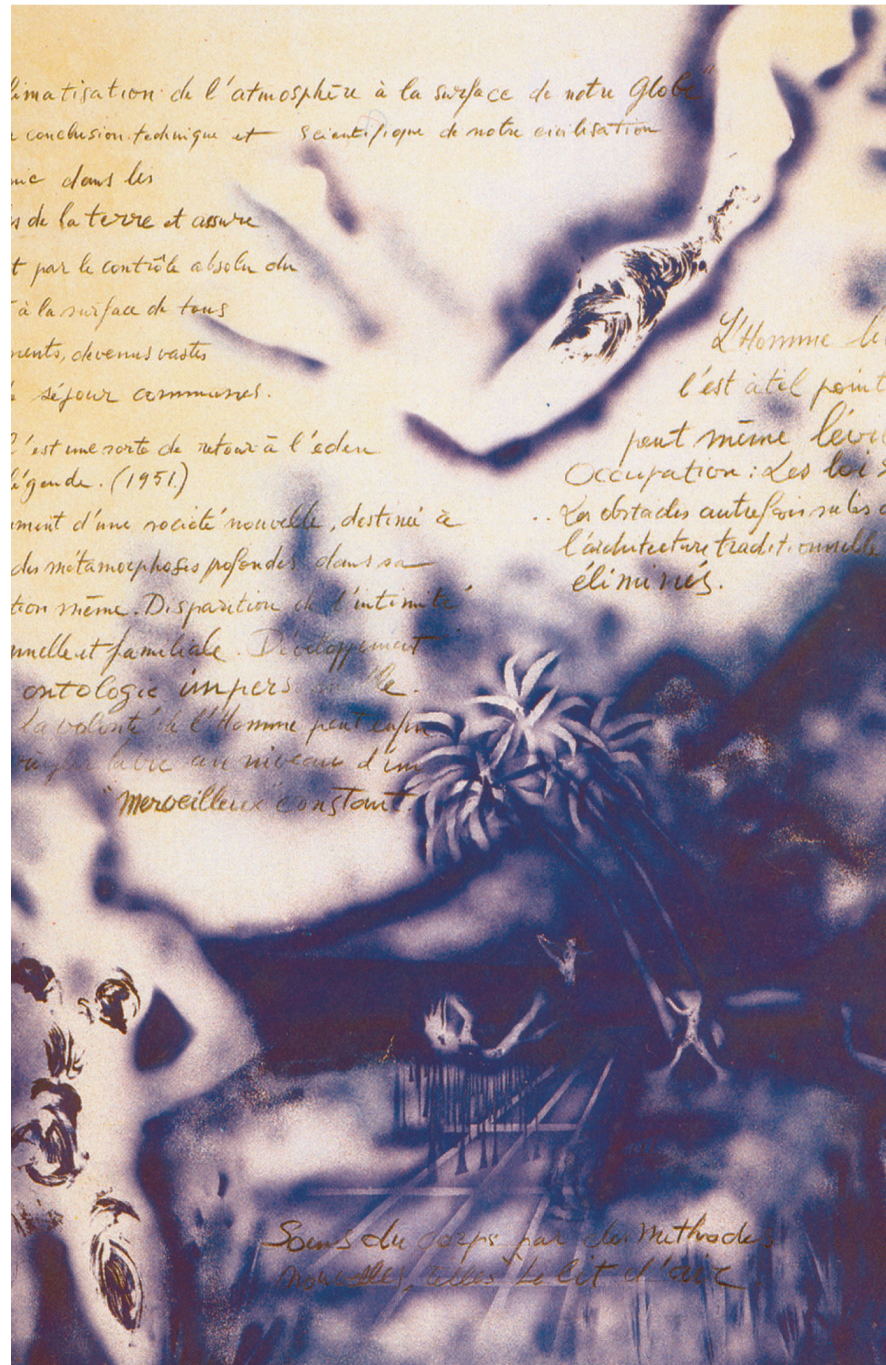 limatisation de l'atmosphère à la surface de notre Globe"
conclusion technique et scientifique de notre civilisation
mie dans les
s de la terre et assure
t par le contrôle absolu du
à la surface de tous
ments, devenus vastes
séjour communes.
C'est une sorte de retour à l'eden
légende. (1951)
ment d'une société nouvelle, destinée à
des métamorphoses profondes dans sa
tion même. Disparition de l'intimité
nnelle et familiale. Développement
ontologie impersonnelle.
la volonté de l'Homme peut enfin
régler la vie au niveau d'un
"merveilleux" constant.
L'Homme
l'est à tel point
peut même
Occupation : Les lois
.. Les obstacles autrefois
l'architecture traditionnelle
éliminés.
Soins du corps par des méthodes
nouvelles, telles "Le lit d'air